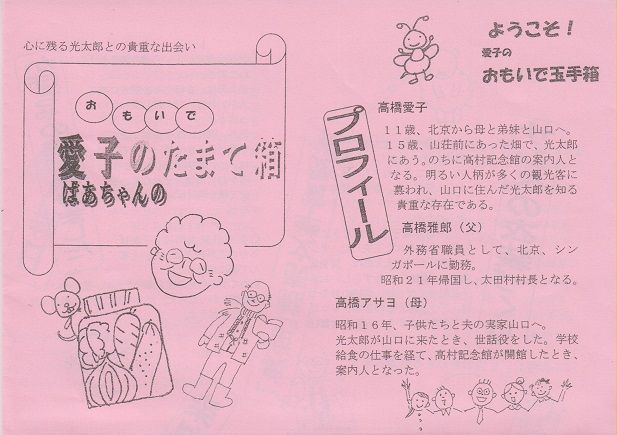 心に残る光太郎との貴重な出会い
おもいで
愛子のたまて箱
ばあちゃんの
ようこそ！
愛子の
おもいで玉手箱
プロフィール
高橋愛子
１１歳、北京から母と弟妹と山口へ。
１５歳、山荘前にあった畑で、光太郎
にあう。のちに高村記念館の案内人と
なる。明るい人柄が多くの観光客に
慕われ、山口に住んだ光太郎を知る
貴重な存在である。
高橋雅郎（父）
外務省職員として、北京、シン
ガポールに勤務。
昭和２１年帰国し、太田村村長となる。
高橋アサヨ（母）
昭和１６年、子供たちと夫の実家山口へ。
光太郎が山口に来たとき、世話役をした。学校
給食の仕事を経て、高村記念館が開館したとき、
案内人となった。